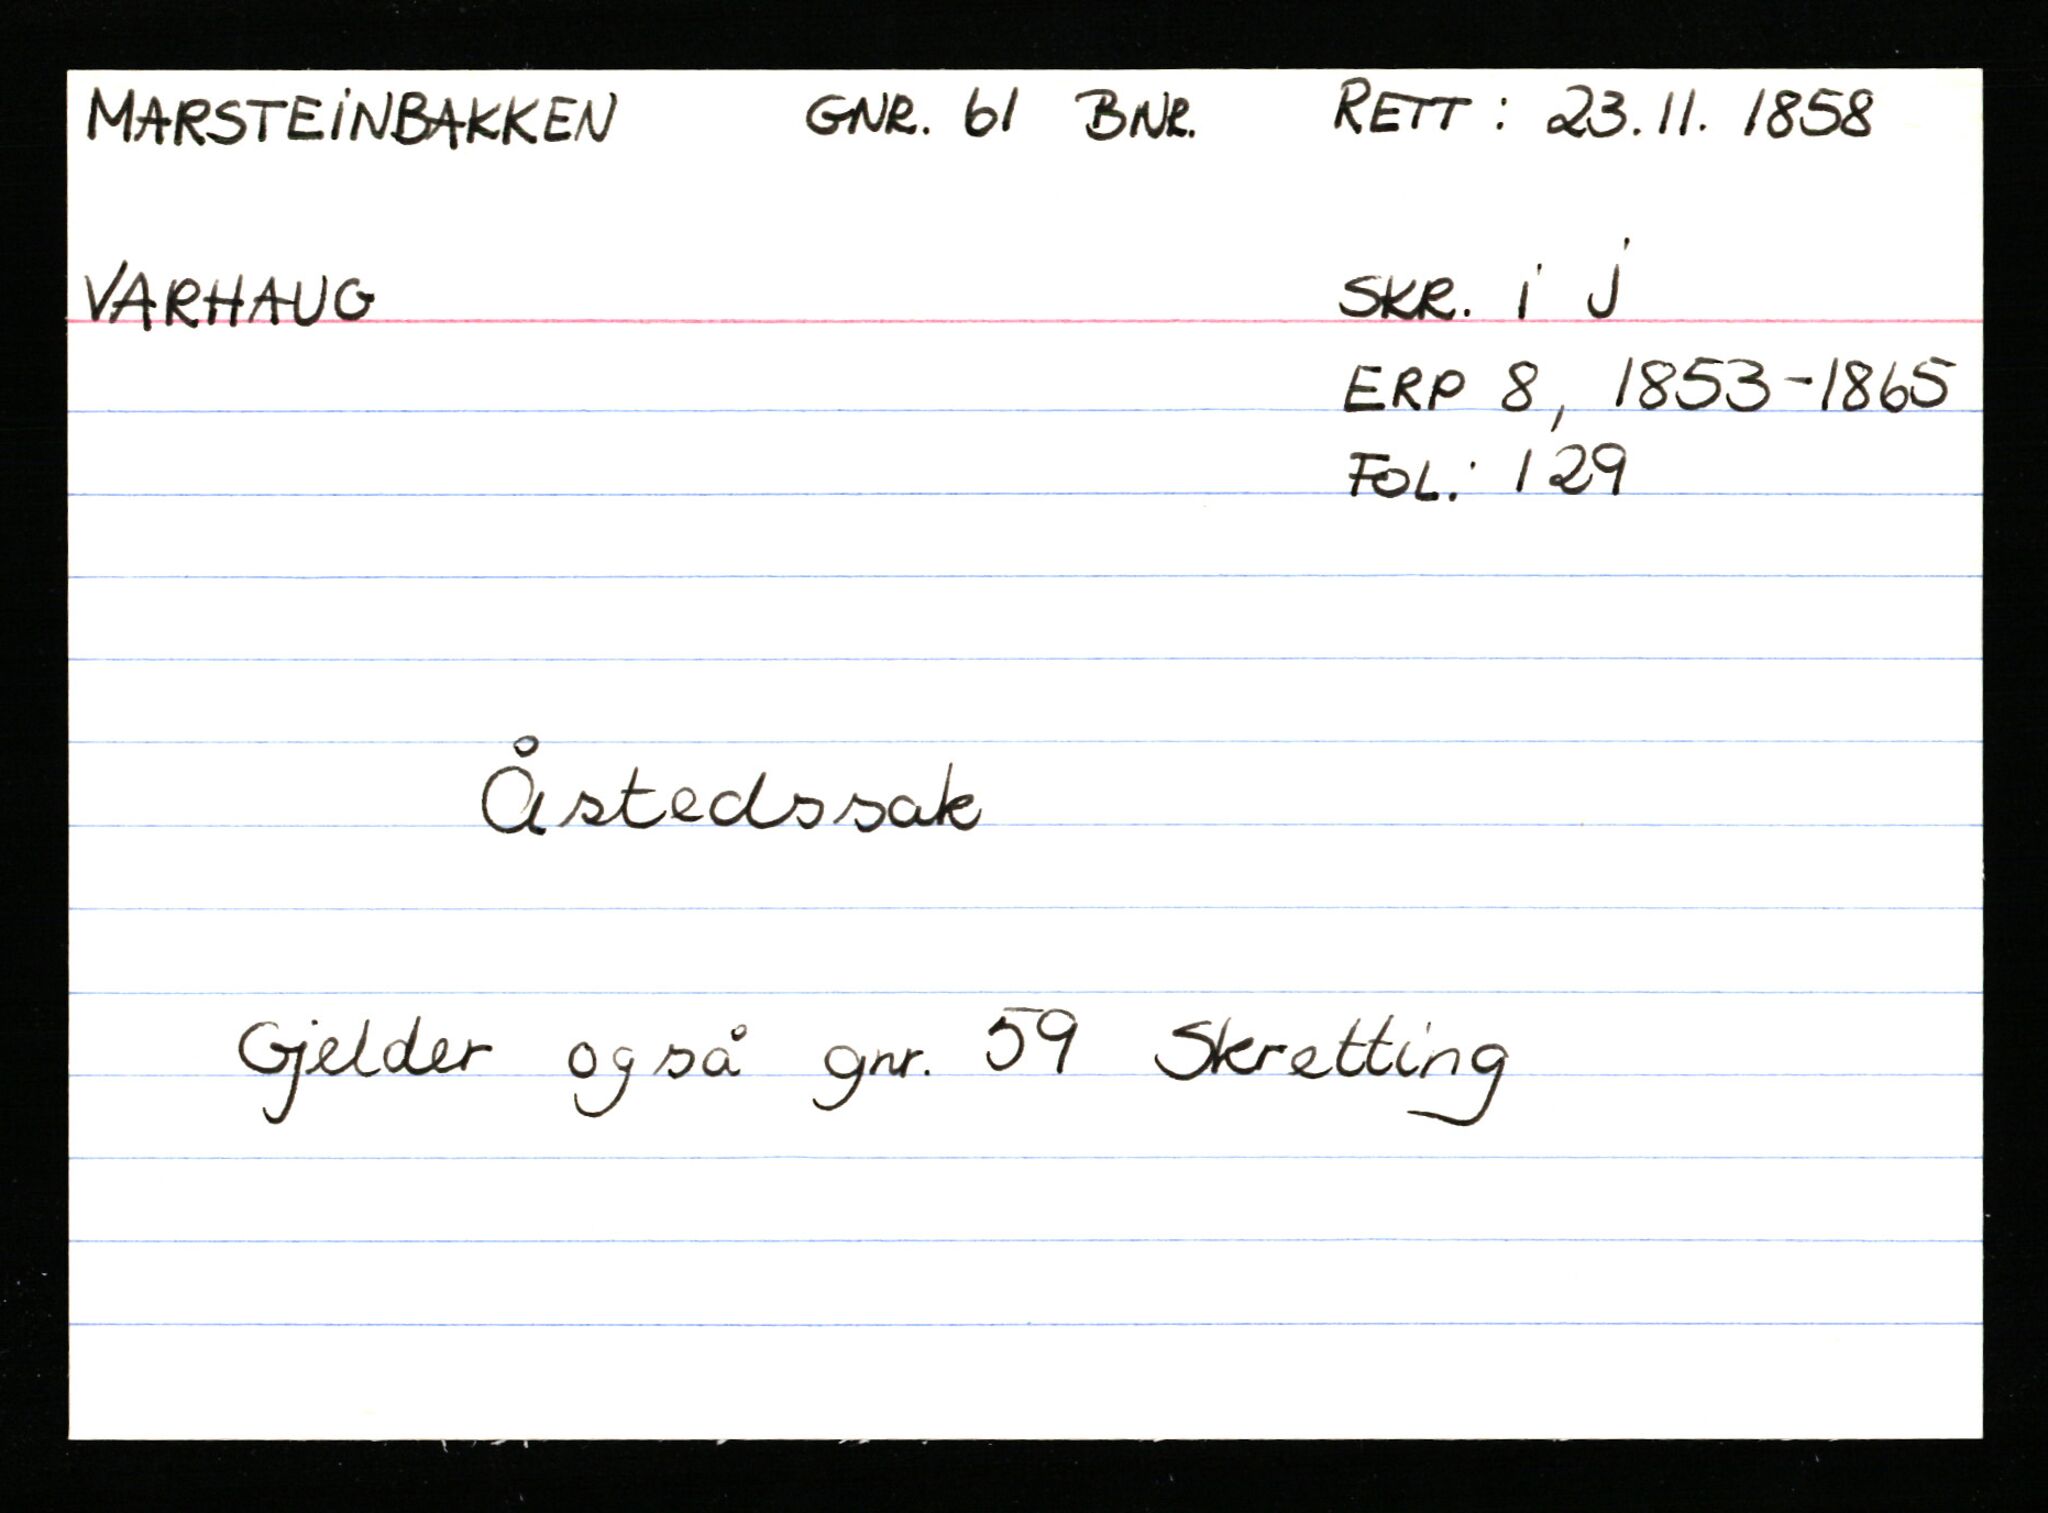 MARSTEiNBAKKEN GNR. 61 BNR. RETT: 23.11.1858
VARHAUG SKR. i J
ERP 8, 1853-1865
FOL.: 129
Åstedssak
Gjelder også gnr. 59 Skretting